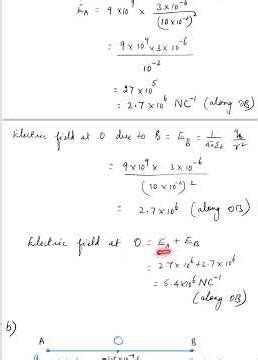 E_A = 9 × 10⁹ × 3×10⁻⁶ / (10 × 10⁻²)²
= 9 × 10⁹ × 3 × 10⁻⁶ / 10⁻²
= 27 × 10⁵
= 2.7 × 10⁶ NC⁻¹ (along OB)
Electric field at O due to B = E_B = 1/4πε₀ q_B/r²
= 9×10⁹ × 3×10⁻⁶ / (10 × 10⁻²)²
= 2.7 × 10⁶ (along OB)
Electric field at O = E_A + E_B
= 2.7 × 10⁶ + 2.7 × 10⁶
= 5.4×10⁶ NC⁻¹
(along OB)
b)
A O B